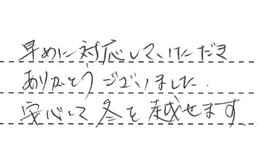 早めに対応して、いただき
ありがとうございました.
安心して冬を越せます